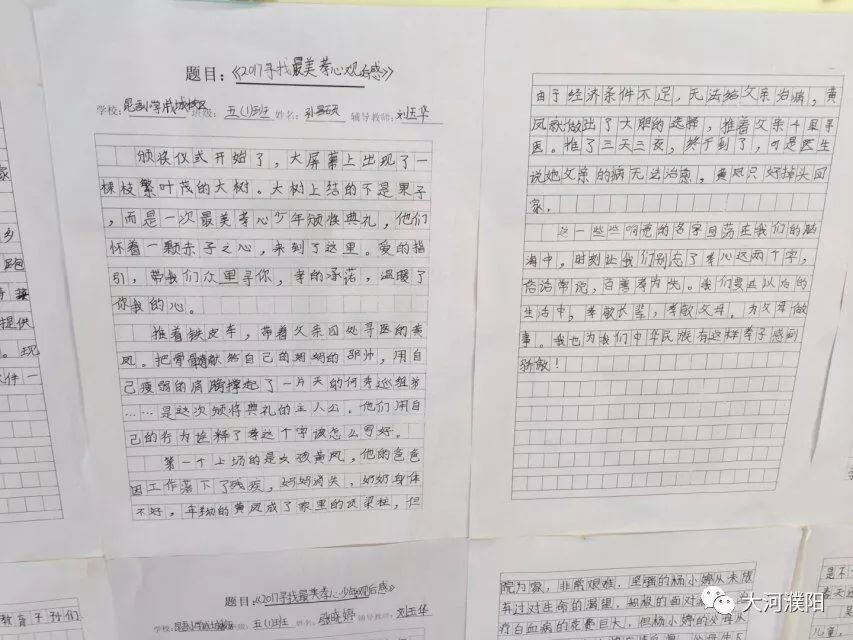 题目：《2017寻找最美孝心观后感》
学校：昆吾小学戚城校区 班级：五（1）班 姓名： 辅导教师：刘玉华
颁奖仪式开始了，大屏幕上出现了一
棵枝繁叶茂的大树。大树上结的不是果子
，而是一次最美孝心少年颁奖典礼，他们
怀着一颗赤子之心，来到了这里。爱的指
引，带我们众里寻你，孝的承诺，温暖了
你我的心。
推着铁皮车，带着父亲四处寻医的黄
凤。把骨髓献给自己的妈妈的邵帅，用自
己瘦弱的肩膀撑起了一片天的何秀巡组芳
……是这次颁奖典礼的主人公。他们用自
己的行为诠释了孝这个字该怎么写好。
第一个上场的是女孩黄凤，他的爸爸
因工作落下了残疾，妈妈消失，奶奶身体
不好，年幼的黄凤成了家里的顶梁柱，但
由于经济条件不足，无法给父亲治病，黄
凤就做出了大胆的选择，推着父亲千里寻
医。推了三天三夜，终于到了，可是医生
说她父亲的病无法治愈，黄凤只好掉头回
家。
这一些些响亮的名字回荡在我们的脑
海中，时刻让我们别忘了孝心这两个字，
俗话常说，百善孝为先。我们要在以后的
生活中，孝敬长辈，孝敬父母。为父母做
事。我也为我们中华民族有这样孝子感到
骄傲！
题目：《2017寻找最美孝心少年观后感》
学校：昆吾小学戚城校区 班级：五（1）班 姓名：张晓婷 辅导教师：刘玉华
院为家，非常艰难，坚强的杨小婷从未放
弃过对生命的渴望，积极的面对
疗白血病的花费巨大，但杨小婷的父母从
提供
。现
教育子孙们
大河濮阳